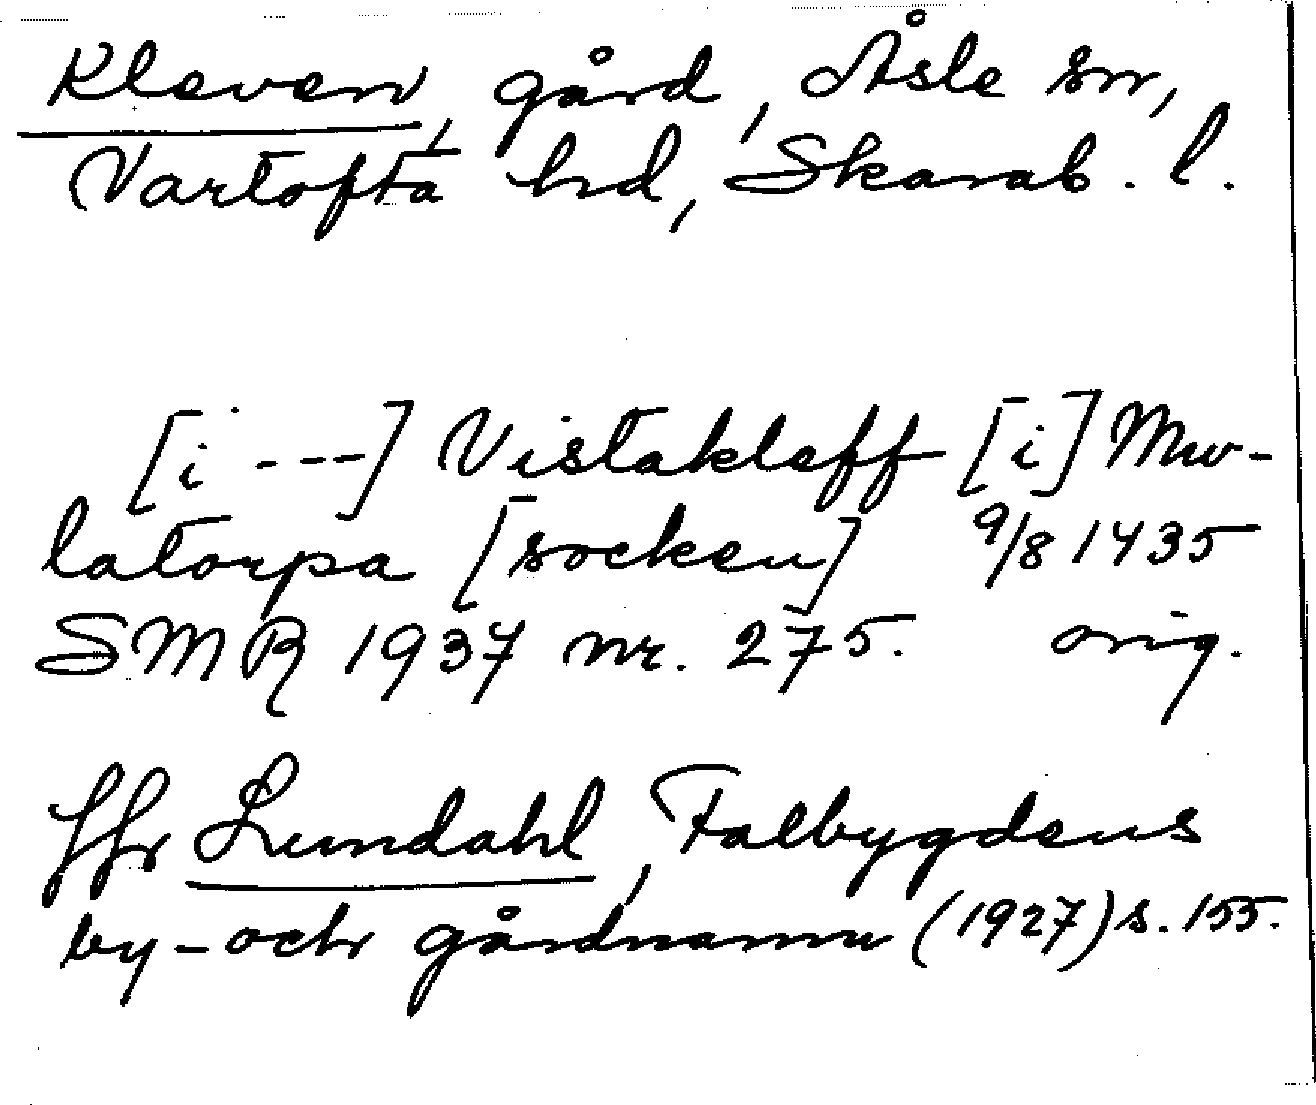 Kleven, gård, Åsle sn,
Vartofta hd, Skarab. l.
[i ---] Vistakleff [i] Mw-
latorpa [socken] 9/8 1435
SMR 1937 nr. 275. orig.
Jfr Lundahl, Falbygdens
by- och gårdnamn (1927) s. 155.